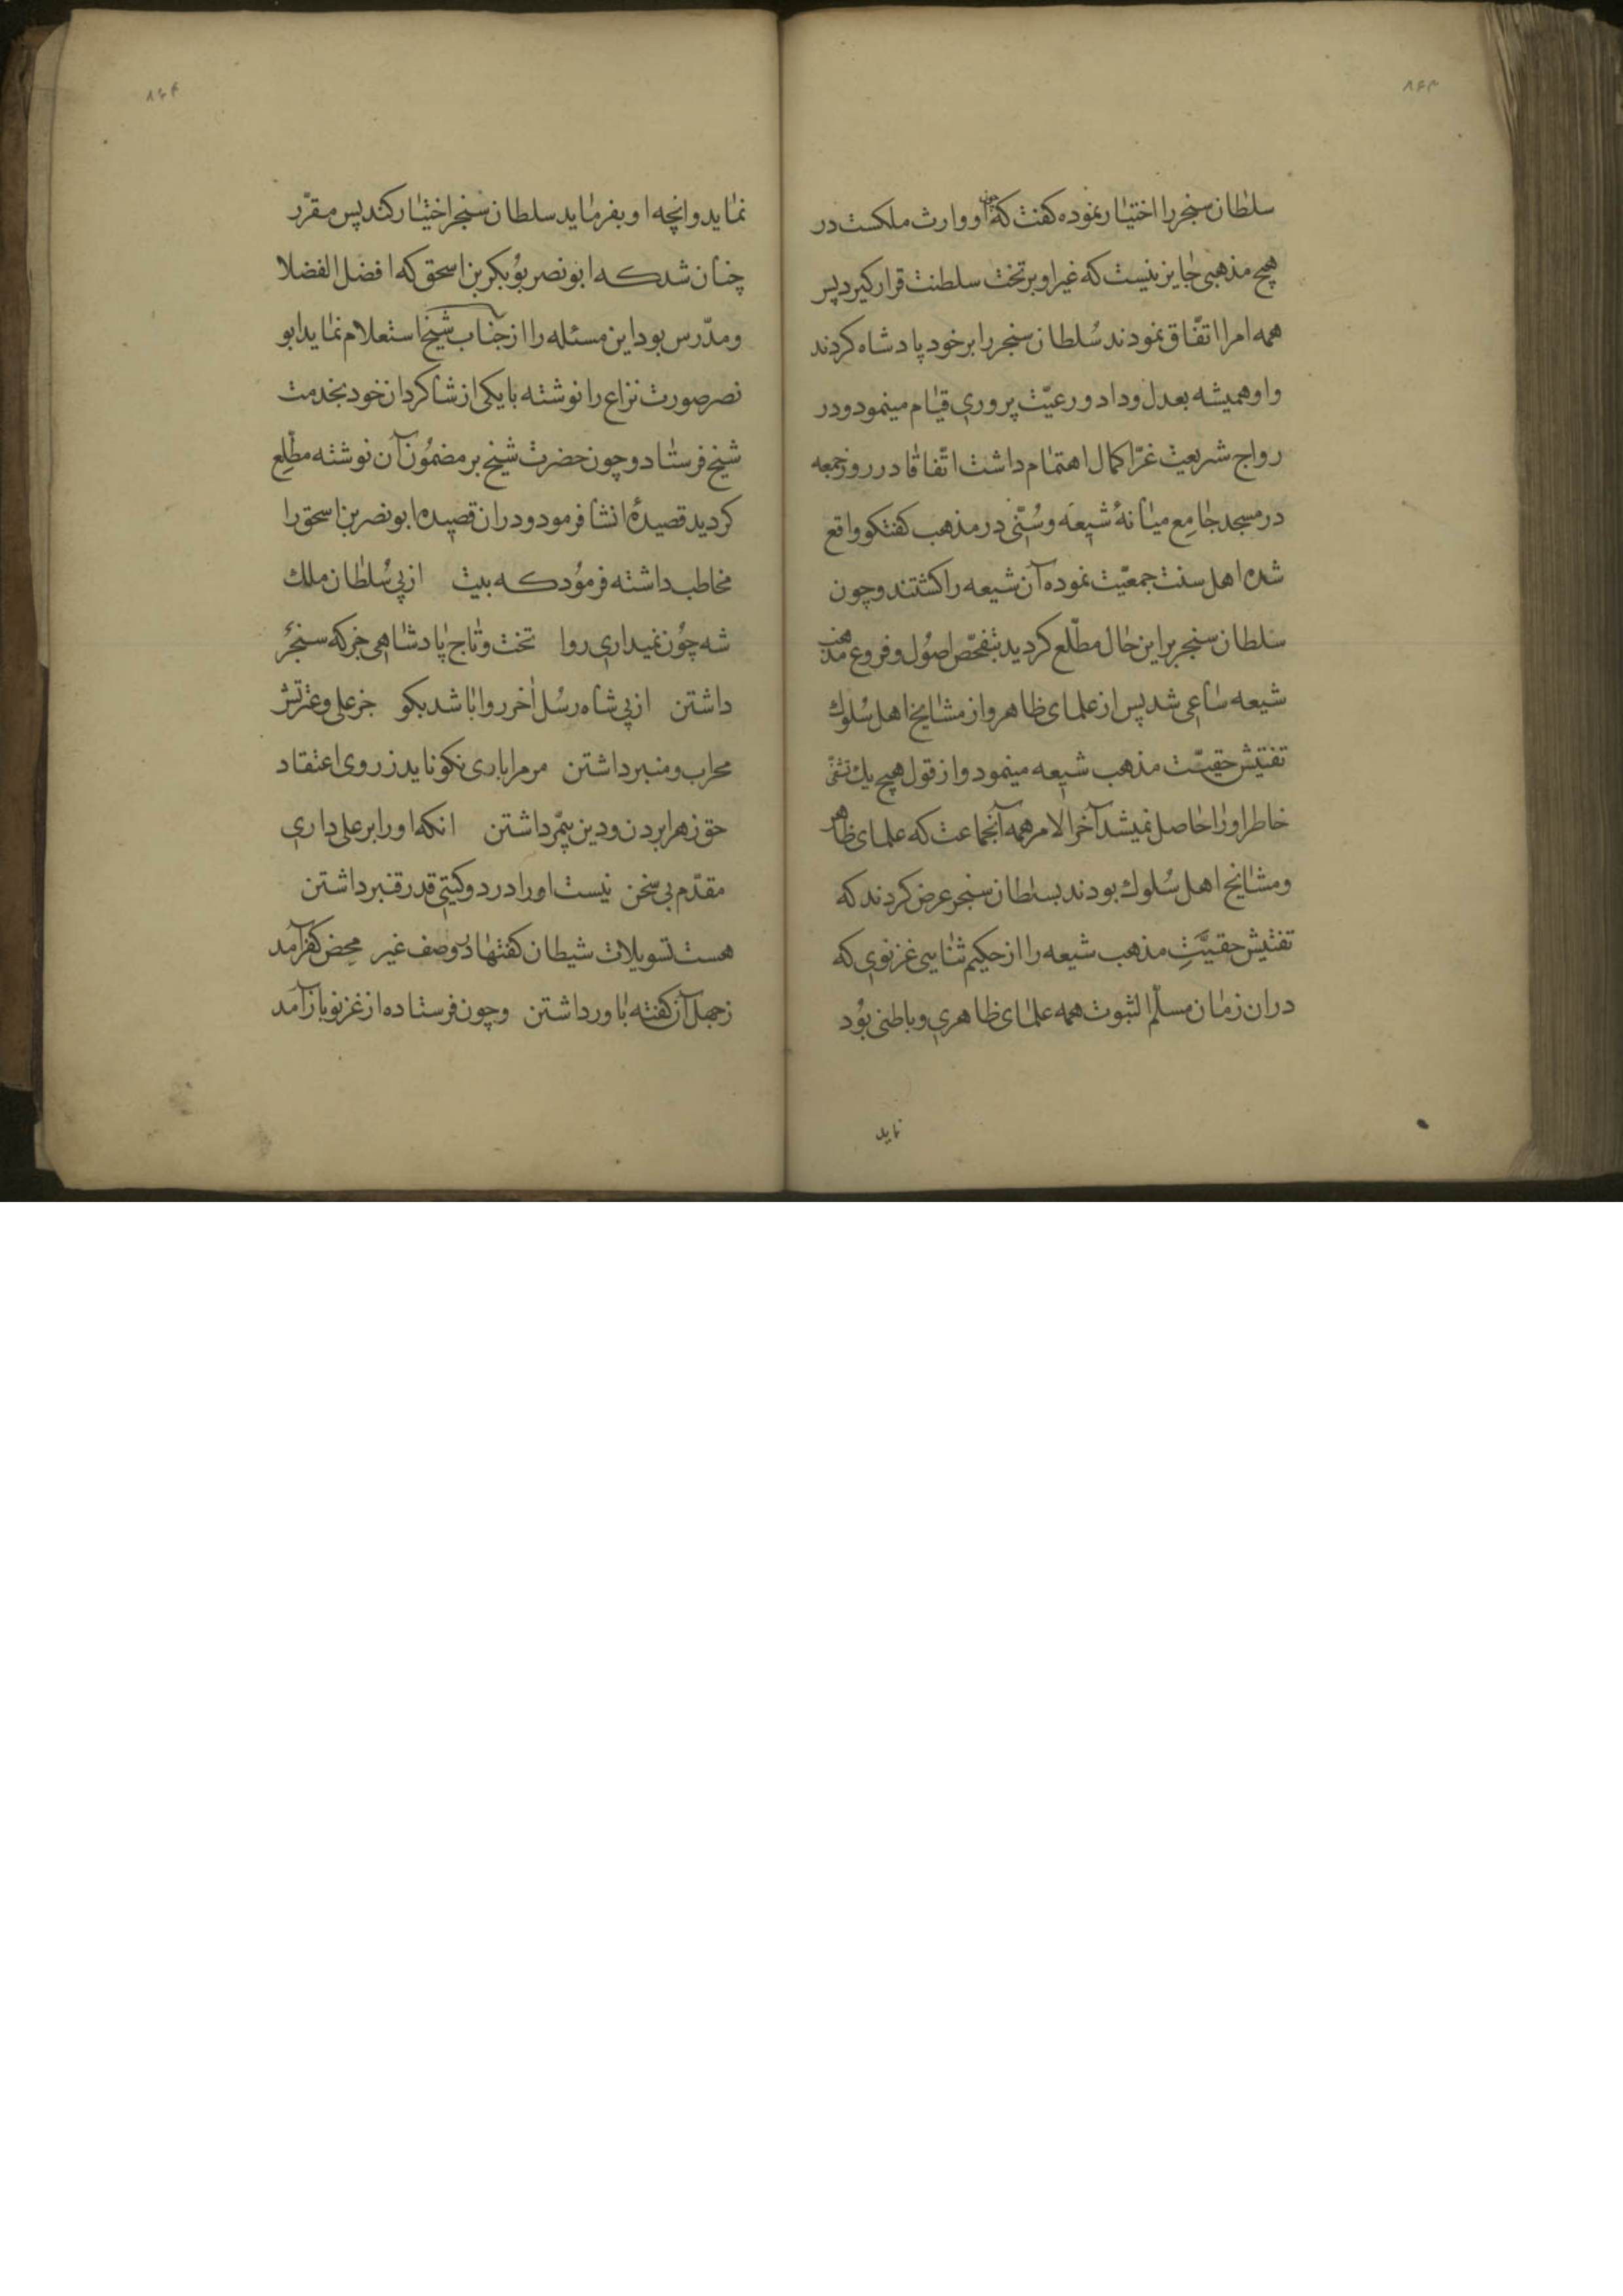 ۸۴۳
سلطان سنجر را اختیار نموده کفت که چون او وارث ملکست در
هیچ مذهبی جایز نیست که غیر او بر تخت سلطنت قرار کیرد پس
همه امرا اتفّاق نمودند سُلطان سنجر را بر خود پادشاه کردند
و او همیشه بعدل و داد و رعیّت پروری قیام مینمود و در
رواج شریعت غرّا کمال اهتمام داشت اتّفاقا در روز جمعه
در مسجد جامع میانهٔ شیعه و سُنّی در مذهب کفتکو واقع
شده اهل سنت جمعیّت نموده آن شیعه را کشتند و چون
سلطان سنجر بر این حال مطّلع کردید بتفحّص اصُول و فروع مذهب
شیعه ساعی شد پس از علمای ظاهر و از مشایخ اهل سُلوك
تفتیش حقیّت مذهب شیعه مینمود و از قول هیچ یك تشفّی
خاطر او را حاصل نمیشد آخر الامر همه آنجماعت که علمای ظاهر
و مشایخ اهل سُلوك بودند بسلطان سنجر عرض کردند که
تفتیش حقیَّتِ مذهب شیعه را از حکیم ثنایی غزنوی که
در ان زمان مسلّم الثبوت همه علمای ظاهری و باطنی بُود
نماید
۸۴۴
نماید و انچه او بفرماید سلطان سنجر اختیار کند پس مقرّر
چنان شد که ابو نصر بوُبکر بن اسحق که افضل الفضلا
و مدّرس بود این مسئله را از جناب شیخ استعلام نماید ابو
نصر صورت نزاع را نوشته با یکی از شاکردان خود بخدمت
شیخ فرستاد و چون حضرت شیخ بر مضمُون آن نوشته مطّلع
کردید قصیدهٔ انشا فرمود و در ان قصیده ابو نصر بن اسحق را
مخاطب داشته فرمُود که بیت از پی سُلطان ملك
شه چُون نمیداری روا تخت و تاج پادشاهی جز که سنجر
داشتن از پی شاه رسُل آخر روا باشد بکو جز علی و عترتش
محراب و منبر داشتن مر مرا باری نکو ناید ز روی اعتقاد
حق زهرا بردن و دین پیمّبر داشتن انکه او را بر علی داری
مقدّم بی سخن نیست او را در دو کیتی قدر قنبر داشتن
هست تسویلات شیطان کفتها در وصف غیر محِض کفر آمد
ز جهل آن کفته باور داشتن و چون فرستاده از غزنو باز آمد